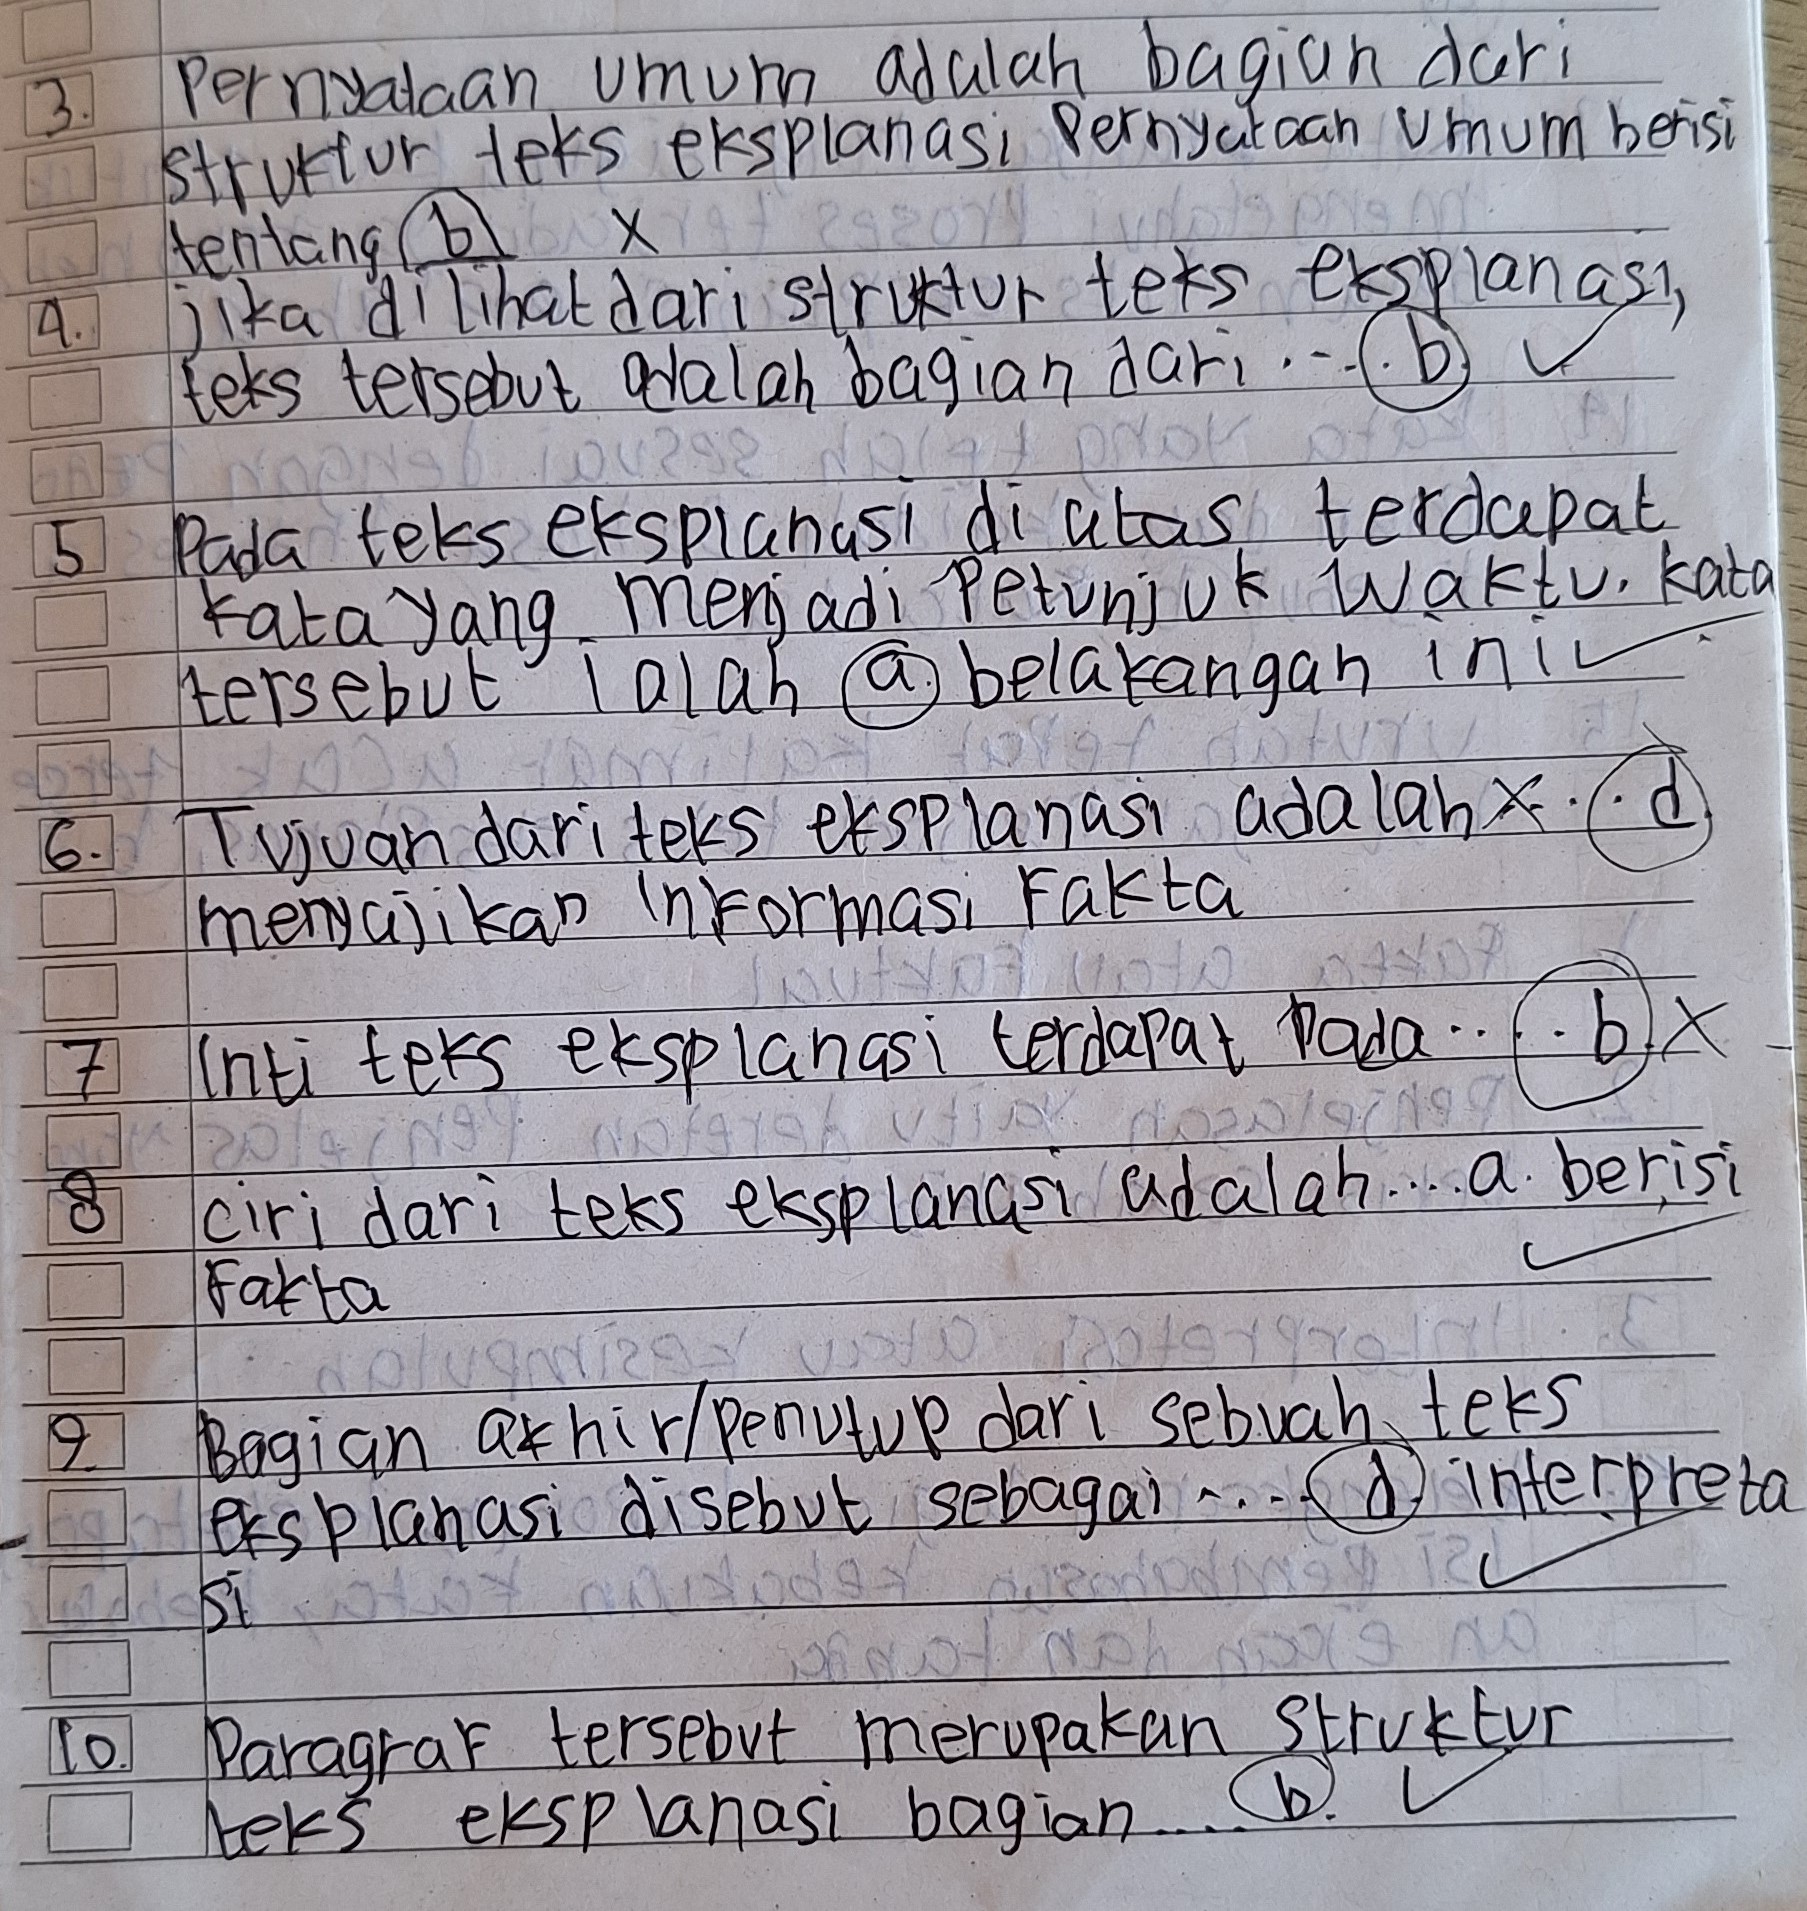 3. Pernyataan umum adalah bagian dari
struktur teks eksplanasi Pernyataan Umum berisi
tentang b X
4. jika dilihat dari struktur teks eksplanasi,
teks tersebut adalah bagian dari .... b. ✓
5 Pada teks eksplanasi di atas terdapat
kata yang menjadi Petunjuk Waktu. kata
tersebut ialah a. belakangan ini ✓
6. Tujuan dari teks eksplanasi adalah X .. d
menyajikan informasi Fakta
7 Inti teks eksplanasi terdapat Pada .... b. X
8 ciri dari teks eksplanasi adalah .... a. berisi ✓
Fakta
9. Bagian akhir/penutup dari sebuah teks
eksplanasi disebut sebagai .... d. interpreta ✓
si
10. Paragraf tersebut merupakan struktur
teks eksplanasi bagian .... b. ✓